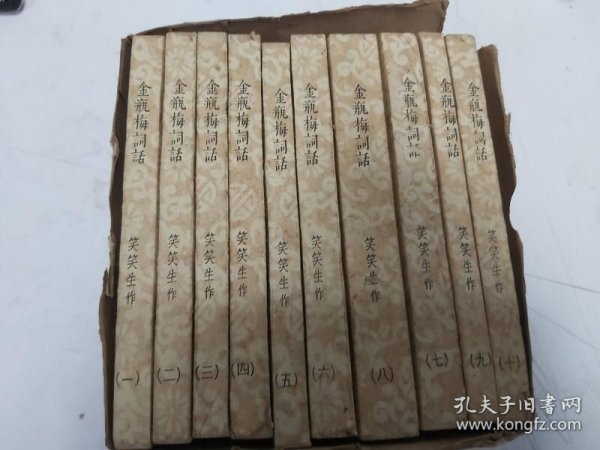 金瓶梅詞話
笑笑生作
(一)
金瓶梅詞話
笑笑生作
(二)
金瓶梅詞話
笑笑生作
(三)
金瓶梅詞話
笑笑生作
(四)
金瓶梅詞話
笑笑生作
(五)
金瓶梅詞話
笑笑生作
(六)
金瓶梅詞話
笑笑生作
(八)
金瓶梅詞話
笑笑生作
(七)
金瓶梅詞話
笑笑生作
(九)
金瓶梅詞話
笑笑生作
(十)
孔夫子旧书网
www.kongfz.com